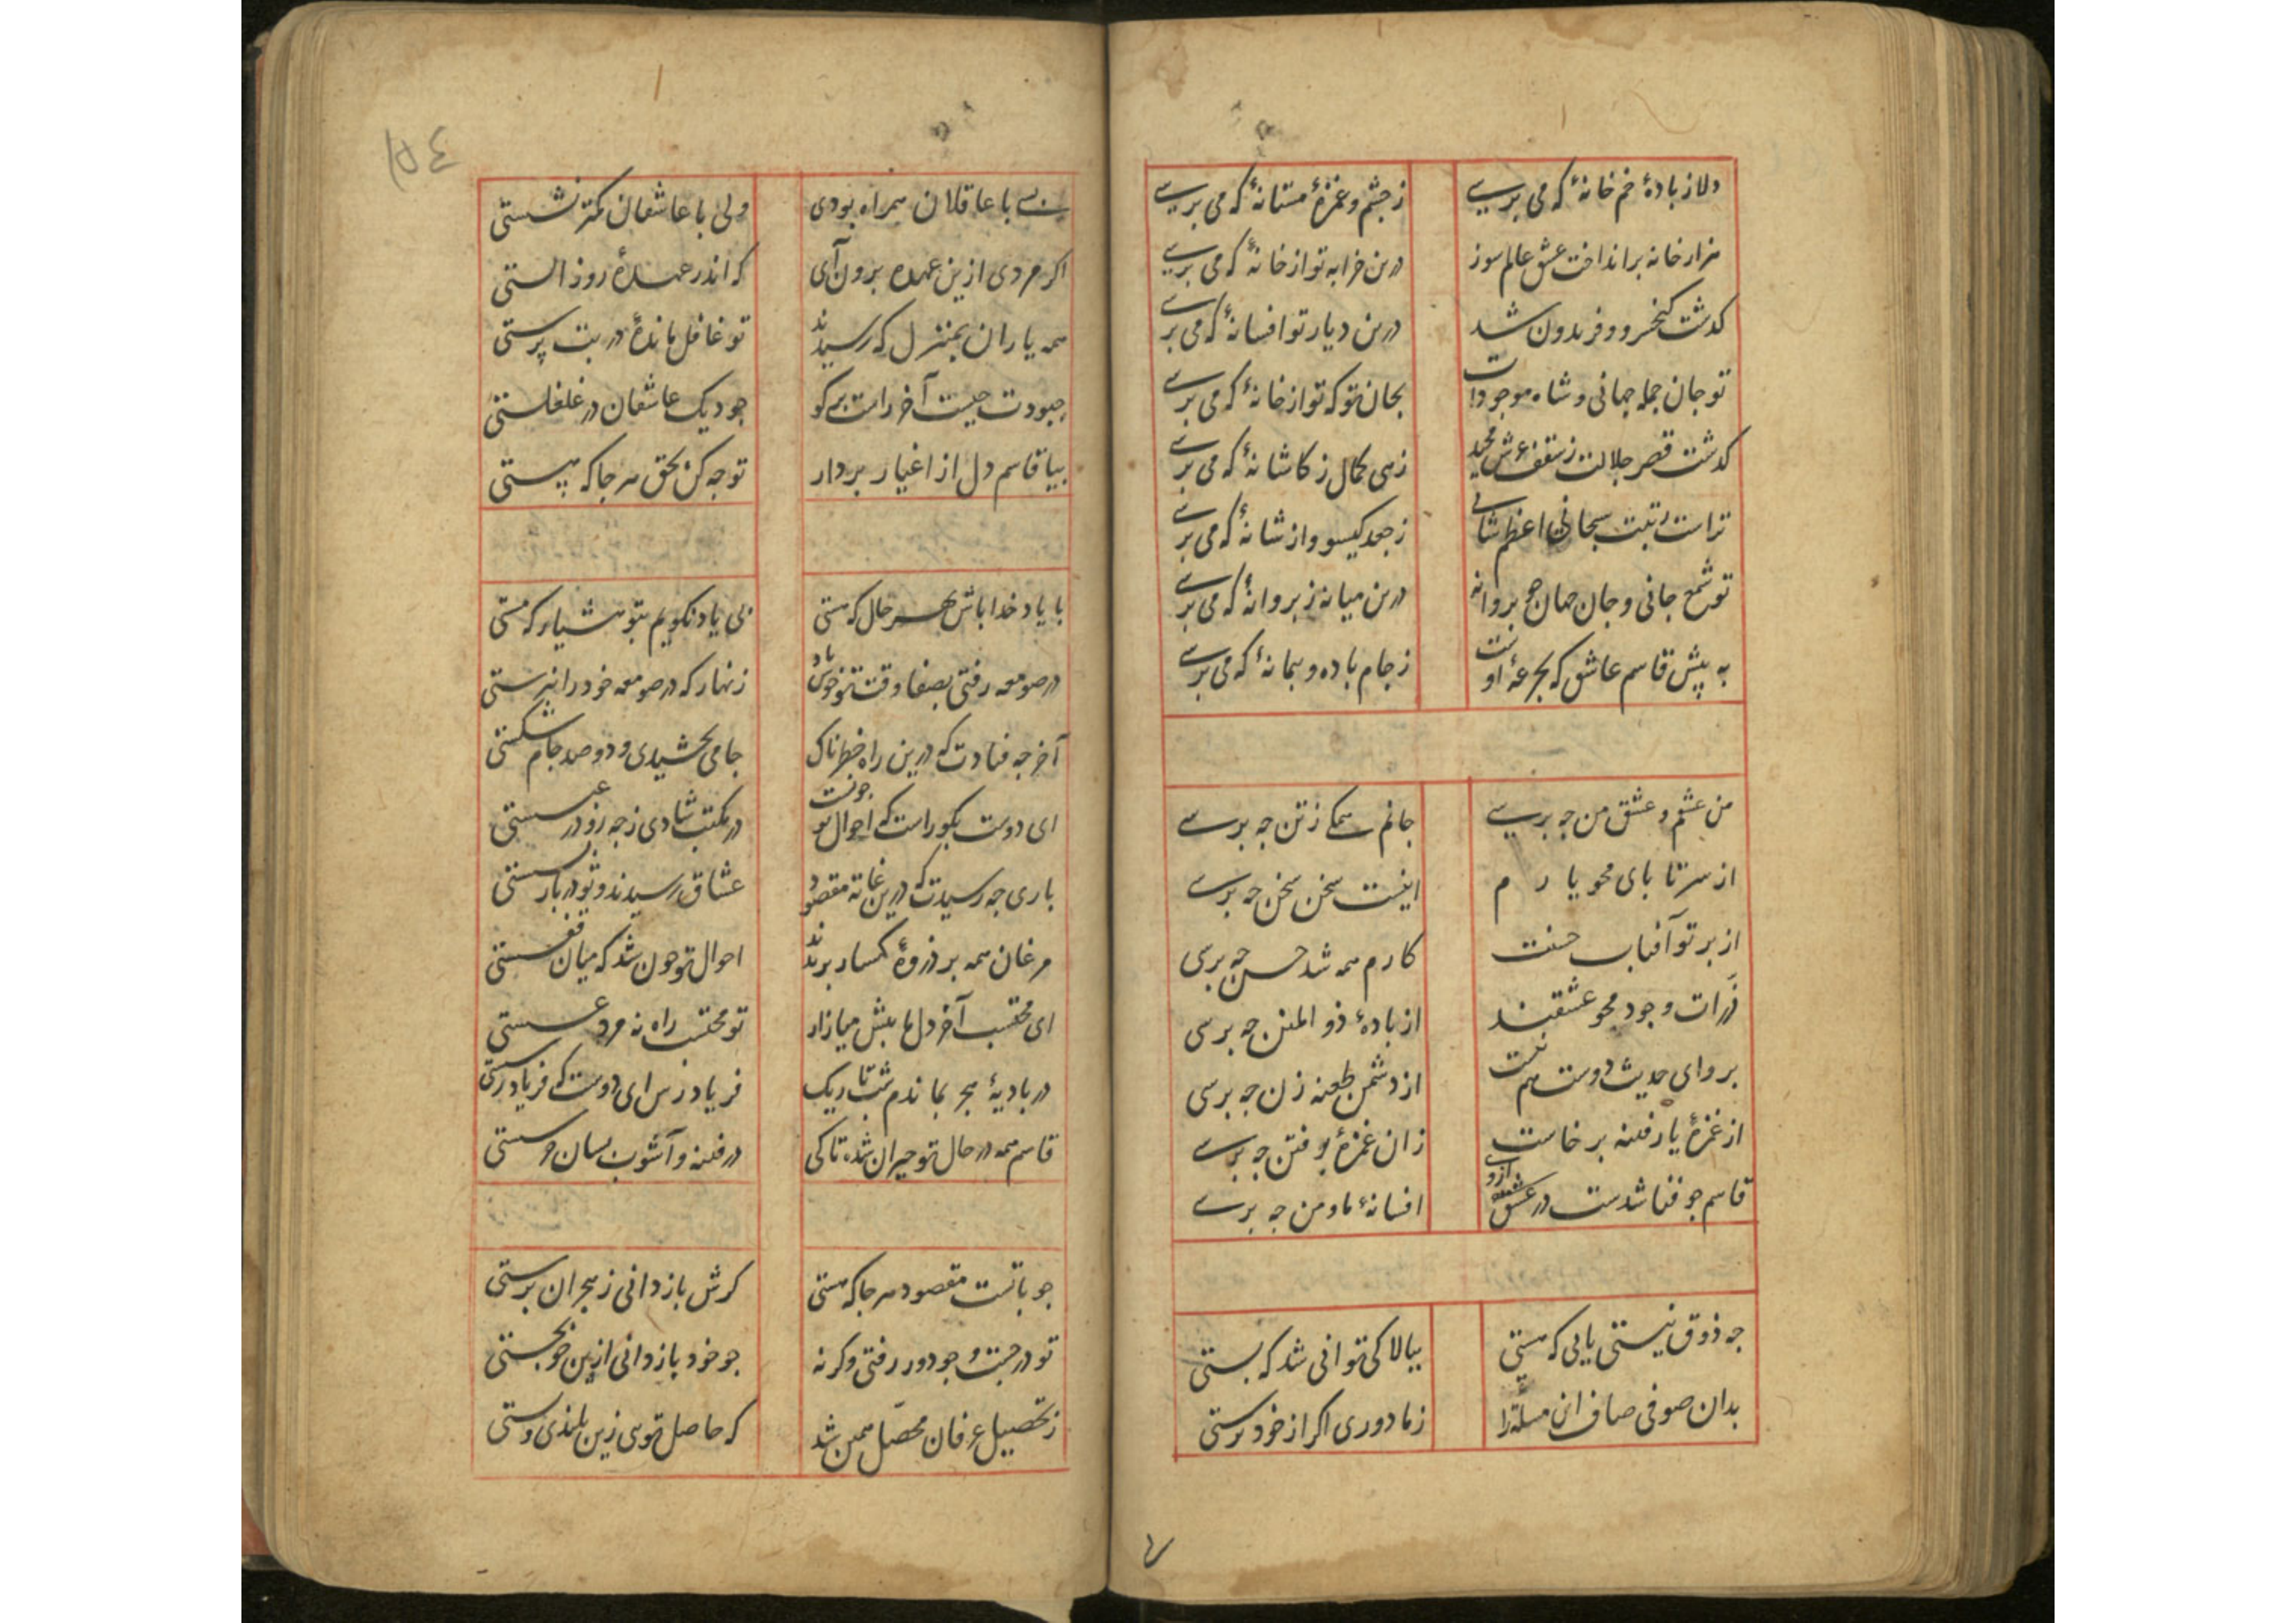 دلا ز بادهٔ خم خانهٔ که می برسی ز چشم و غمزهٔ مستانهٔ که می برسی
هزار خانه برانداخت عشق عالم سوز درین خرابه تو از خانهٔ که می برسی
کدشت کیخسرو و فریدون شد درین دیار تو افسانهٔ که می برسی
تو جان جمله جهانی و شاه موجودات بجان تو که تو از خانهٔ که می برسی
کدشت قصر جلالت ز سقف عرش مجید زهی کمال ز کاشانهٔ که می برسی
تراست رتبت سبحانی اعظم شانی ز جعد کیسو و از شانهٔ که می برسی
تو شمع جانی و جان جهان جو بروانه درین میانه ز بروانهٔ که می برسی
به پیش قاسم عاشق که بجرعهٔ او مست ز جام باده و بیمانهٔ که می برسی
من عشقم و عشق من جه برسی جانم همکی ز تن جه برسی
از سر تا بای محو یارم اینست سخن سخن جه برسی
از برتو آفتاب حسنت کارم همه شد حسن جه برسی
ذرات وجود محو عشقند از بادهٔ ذو المنن جه برسی
بروای حدیث دوست هم نیست از دشمن طعنه زن جه برسی
از غمزهٔ یار فتنه برخاست زان غمزهٔ بر فتن جه برسی
قاسم جو فنا شدست در عشق افسانهٔ ما و من جه برسی
جه ذوق نیستی یابی که هستی ببالا کی توانی شد که بستی
بدان صوفی صاف این مسئله را ز ما دوری اکر از خود برستی
بسی با عاقلان همراه بودی ولی با عاشقان کمتر نشستی
اکر مردی ازین عهده برون آی که اندر عهدهٔ روز الستی
همه یاران بمنزل که رسیدند تو غافل ماندهٔ در بت پرستی
جبودت جیست آخر راست برکو جو دیک عاشقان در غلغلستی
بیا قاسم دل از اغیار بردار توجه کن بحق هر جا که هستی
با یاد خدا باش بهر حال که هستی بی یاد نکویم بتو هشیار که مستی
در صومعه رفتی بصفا وقت تو خوش باد زنهار که در صومعه خود را نبرستی
آخر جه فتادت که درین راه خطرناک جامی بخشیدی و دو صد جام شکستی
ای دوست بکو راست که احوال تو جونست در مکتب شادی ز جه رو در عبسستی
باری جه رسیدت که درین غایة مقصود عشاق رسیدند و تو در بازبسستی
مرغان همه بر ذروهٔ کهسار برندند احوال تو جون شد که میان قفسستی
ای محتسب آخر دل ما بیش میازار تو محتسب راه نه مرد عسستی
در بادیهٔ هجر بماندم شب تاریک فریاد رس ای دوست که فریاد رسستی
قاسم همه در حال تو حیران شده تا کی در فتنه و آشوب بسان جرسستی
جو باتست مقصود هر جا که هستی کرش باز دانی ز هجران برستی
تو در جست و جو دور رفتی وکرنه جو خود باز دانی ازین خو بجستی
ز تحصیل عرفان محصل همین شد که حاصل توی زین بلندی و بستی